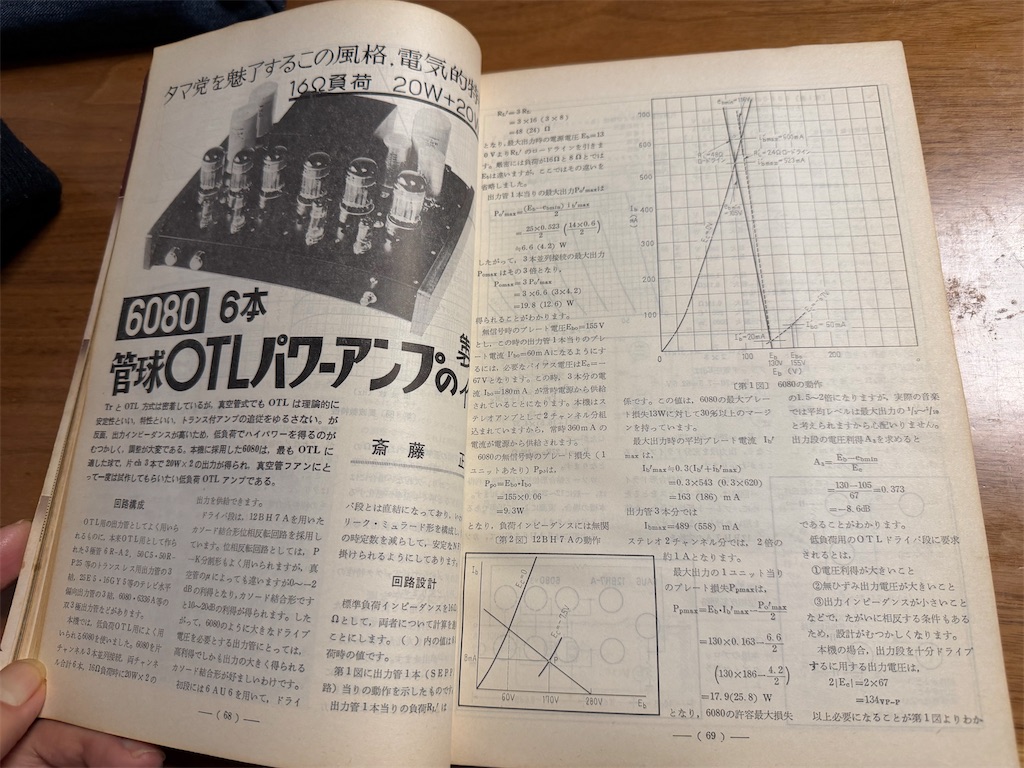 タマ党を魅了するこの風格．電気的特
16Ω負荷 20W+20
6080 6本
管球OTLパワーアンプの
Tr と OTL 方式は密着しているが、真空管式でも OTL は理論的に
安定性といい、特性といい、トランス付アンプの追従をゆるさない。が
反面、出力インピーダンスが高いため、低負荷でハイパワーを得るのが
むつかしく、調整が大変である。本機に採用した6080は、最も OTL に
適した球で、片 ch 3本で 20W×2 の出力が得られ、真空管フアンにと
って一度は試作してもらいたい低負荷 OTL アンプである。
斎藤
回路構成
OTL用の出力管としてよく用いら
れるものに、本来OTL用として作ら
れた3極管6R-A2、50C5・50R-
P25等のトランスレス用出力管の3
結、25E5・16GY5等のテレビ水平
偏向出力管の3結、6080・6336A等の
双3極出力管などがあります。
本機では、低負荷OTL用によく用
いられる6080を使いました。6080を片
チャンネル3本並列接続、両チャンネ
ル合計6本、16Ω負荷時に20W×2の
出力を供給できます。
ドライバ段は、12BH7Aを用いた
カソード結合形位相反転回路を採用し
ています。位相反転回路としては、P
―K分割形もよく用いられますが、真
空管のμによっても違いますが0〜−2
dBの利得となり、カソード結合形です
と10〜20dBの利得が得られます。した
がって、6080のように大きなドライブ
電圧を必要とする出力管にとっては、
高利得でしかも出力の大きく得られる
カソード結合形が好ましいわけです。
初段には6AU6を用いて、ドライ
バ段とは直結になっており、い
リーク・ミュラード形を構成し、
の時定数を減らして、安定なN
掛けられるようにしてあります。
回路設計
標準負荷インピーダンスを16Ω
Ωとして、両者について計算を
ことにします。（ ）内の値は8
荷時の値です。
第1図に出力管1本（SEPP
路）当りの動作を示したもので
出力管1本当りの負荷RL′は
―（68）―
RL′=3RL
=3×16（3×8）
=48（24）Ω
となり、最大出力時の電源電圧Eb=13
0VよりRL′のロードラインを引きま
す。厳密には負荷が16Ωと8Ωとでは
Ebは違いますが、ここではその違いを
省略しました。
出力管1本当りの最大出力Po′maxは
Po′max=(Eb−ebmin) ib′max/2
=25×0.523/2 (14×0.6/2)
≒6.6（4.2）W
したがって、3本並列接続の最大出力
Pomaxはその3倍となり、
Pomax=3Po′max
=3×6.6（3×4.2）
=19.8（12.6）W
得られることがわかります。
無信号時のプレート電圧Ebo=155V
とし、この時の出力管1本当りのプレ
ート電流Ibo=60mAになるようにす
るには、必要なバイアス電圧はEc=−
67Vとなります。この時、3本分の電
流Ibo=180mAが常時電源から供給
されていることになります。本機はス
テレオアンプとして2チャンネル分組
込まれていますから、常時360mAの
電流が電源から供給されます。
無信号時の6080のプレート損失（1
ユニットあたり）Ppoは、
Ppo=Ebo・Ibo
=155×0.06
=9.3W
となり、負荷インピーダンスには無関
〔第2図〕12BH7Aの動作
Ib
Ec=0
Ec=−7.5V
8mA
P
60V 170V 280V Eb
700
600
500
400
300
200
100
Ib
(mA)
Ibo=60mA
Io=20mA
0 100 200
Eb 130V
Ebo 155V
Eb (V)
〔第1図〕6080の動作
係です。この値は、6080の最大プレー
ト損失13Wに対して30％以上のマージ
ンを持っています。
最大出力時の平均プレート電流 Ib′
max は、
Ib′max≒0.3(Ib′+ib′max)
=0.3×0.543（0.3×0.620）
=163（186）mA
出力管3本分では
Ibmax=489（558）mA
ステレオ2チャンネル分では、2倍の
約1Aとなります。
最大出力時の1ユニット当り
のプレート損失Ppmaxは、
Ppmax=Eb・Ib′max−Po′max/2
=130×0.163−6.6/2
(130×186−4.2/2)
=17.9（25.8）W
となり、6080の許容最大損失
の1.5〜2倍になりますが、実際の音楽
では平均レベルは最大出力の
と考えられますから心配いりません。
出力段の電圧利得Asを求めると
As=Eb−ebmin/Ec
=130−105/67=0.373
=−8.6dB
であることがわかります。
低負荷用のOTLドライバ段に要求
されるのは、
①電圧利得が大きいこと
②無ひずみ出力電圧が大きいこと
③出力インピーダンスが小さいこと
などで、たがいに相反する条件もある
ため、設計がむつかしくなります。
本機の場合、出力段を十分ドライブ
するに用する出力電圧は、
2|Ec|=2×67
=134VP-P
以上必要になることが第1図よりわか
―（69）―